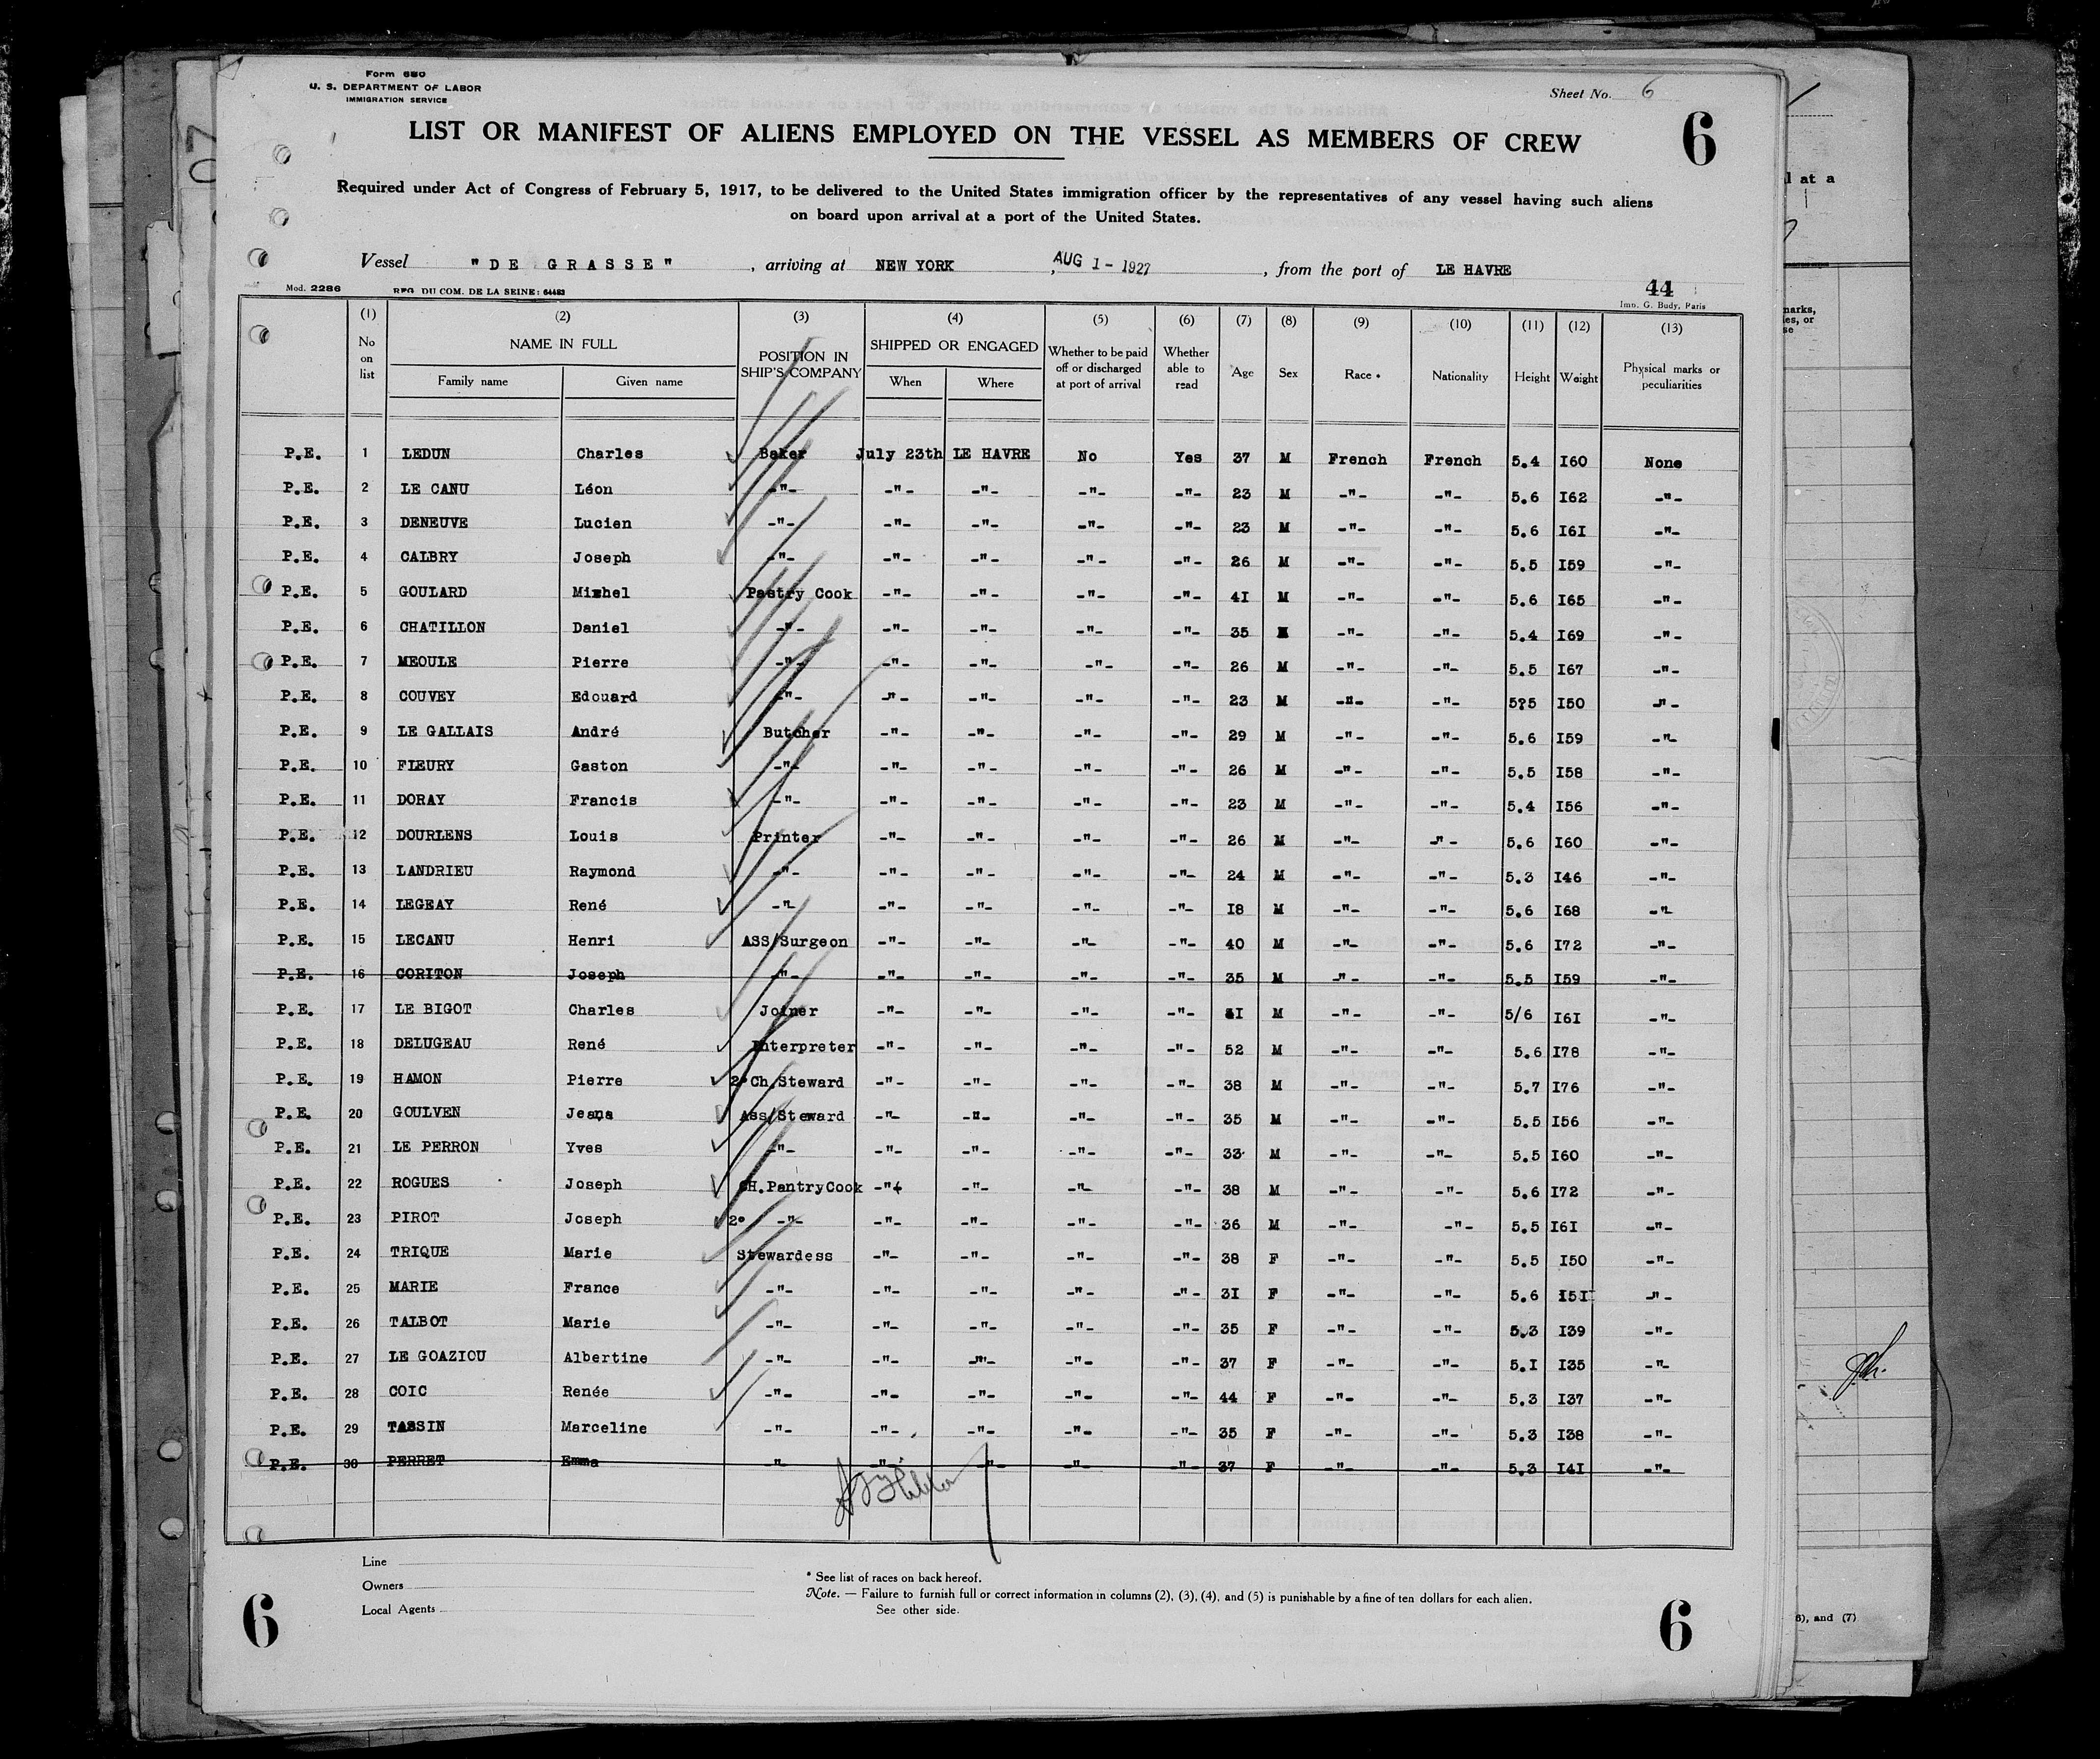 Form 680
U. S. DEPARTMENT OF LABOR
IMMIGRATION SERVICE
Sheet No. 6
6
LIST OR MANIFEST OF ALIENS EMPLOYED ON THE VESSEL AS MEMBERS OF CREW
Required under Act of Congress of February 5, 1917, to be delivered to the United States immigration officer by the representatives of any vessel having such aliens
on board upon arrival at a port of the United States.
Vessel "DE GRASSE", arriving at NEW YORK, AUG 1 - 1927, from the port of LE HAVRE
Mod. 2286 REG. DU COM. DE LA SEINE: 64483
44
Imp. G. Budy, Paris
(1) No on list (2) NAME IN FULL Family name Given name (3) POSITION IN SHIP'S COMPANY (4) SHIPPED OR ENGAGED When Where (5) Whether to be paid off or discharged at port of arrival (6) Whether able to read (7) Age (8) Sex (9) Race * (10) Nationality (11) Height (12) Weight (13) Physical marks or peculiarities
P.E. 1 LEDUN Charles Baker July 23th LE HAVRE No Yes 37 M French French 5.4 I60 None
P.E. 2 LE CANU Léon -"- -"- -"- -"- -"- 23 M -"- -"- 5.6 I62 -"-
P.E. 3 DENEUVE Lucien -"- -"- -"- -"- -"- 23 M -"- -"- 5.6 I6I -"-
P.E. 4 CALBRY Joseph -"- -"- -"- -"- -"- 26 M -"- -"- 5.5 I59 -"-
P.E. 5 GOULARD Mixhel Pastry Cook -"- -"- -"- -"- 4I M -"- -"- 5.6 I65 -"-
P.E. 6 CHATILLON Daniel -"- -"- -"- -"- -"- 35 M -"- -"- 5.4 I69 -"-
P.E. 7 MEOULE Pierre -"- -"- -"- -"- -"- 26 M -"- -"- 5.5 I67 -"-
P.E. 8 COUVEY Edouard -"- -"- -"- -"- -"- 23 M -"- -"- 5?5 I50 -"-
P.E. 9 LE GALLAIS André Butcher -"- -"- -"- -"- 29 M -"- -"- 5.6 I59 -"-
P.E. 10 FLEURY Gaston -"- -"- -"- -"- -"- 26 M -"- -"- 5.5 I58 -"-
P.E. 11 DORAY Francis -"- -"- -"- -"- -"- 23 M -"- -"- 5.4 I56 -"-
P.E. 12 DOURLENS Louis Printer -"- -"- -"- -"- 26 M -"- -"- 5.6 I60 -"-
P.E. 13 LANDRIEU Raymond -"- -"- -"- -"- -"- 24 M -"- -"- 5.3 I46 -"-
P.E. 14 LEGEAY René -"- -"- -"- -"- -"- I8 M -"- -"- 5.6 I68 -"-
P.E. 15 LECANU Henri ASS/Surgeon -"- -"- -"- -"- 40 M -"- -"- 5.6 I72 -"-
P.E. 16 CORITON Joseph -"- -"- -"- -"- -"- 35 M -"- -"- 5.5 I59 -"-
P.E. 17 LE BIGOT Charles Joiner -"- -"- -"- -"- M -"- -"- 5/6 I6I -"-
P.E. 18 DELUGEAU René Interpreter -"- -"- -"- -"- 52 M -"- -"- 5.6 I78 -"-
P.E. 19 HAMON Pierre 2° Ch.Steward -"- -"- -"- -"- 38 M -"- -"- 5.7 I76 -"-
P.E. 20 GOULVEN Ass/Steward -"- -"- -"- -"- 35 M -"- -"- 5.5 I56 -"-
P.E. 21 LE PERRON Yves -"- -"- -"- -"- -"- 33 M -"- -"- 5.5 I60 -"-
P.E. 22 ROGUES Joseph CH.PantryCook -"- -"- -"- -"- 38 M -"- -"- 5.6 I72 -"-
P.E. 23 PIROT Joseph 2° -"- -"- -"- -"- -"- 36 M -"- -"- 5.5 I6I -"-
P.E. 24 TRIQUE Marie Stewardess -"- -"- -"- -"- 38 F -"- -"- 5.5 I50 -"-
P.E. 25 MARIE France -"- -"- -"- -"- -"- 3I F -"- -"- 5.6 I5I -"-
P.E. 26 TALBOT Marie -"- -"- -"- -"- -"- 35 F -"- -"- 5.3 I39 -"-
P.E. 27 LE GOAZIOU Albertine -"- -"- -"- -"- -"- 37 F -"- -"- 5.I I35 -"-
P.E. 28 COIC Renée -"- -"- -"- -"- -"- 44 F -"- -"- 5.3 I37 -"-
P.E. 29 TASSIN Marceline -"- -"- -"- -"- -"- 35 F -"- -"- 5.3 I38 -"-
P.E. 30 PERRET Emma -"- -"- -"- -"- -"- 37 F -"- -"- 5.3 I4I -"-
Line
Owners
Local Agents
* See list of races on back hereof.
Note. — Failure to furnish full or correct information in columns (2), (3), (4), and (5) is punishable by a fine of ten dollars for each alien.
See other side.
6
6
l at a
and (7)